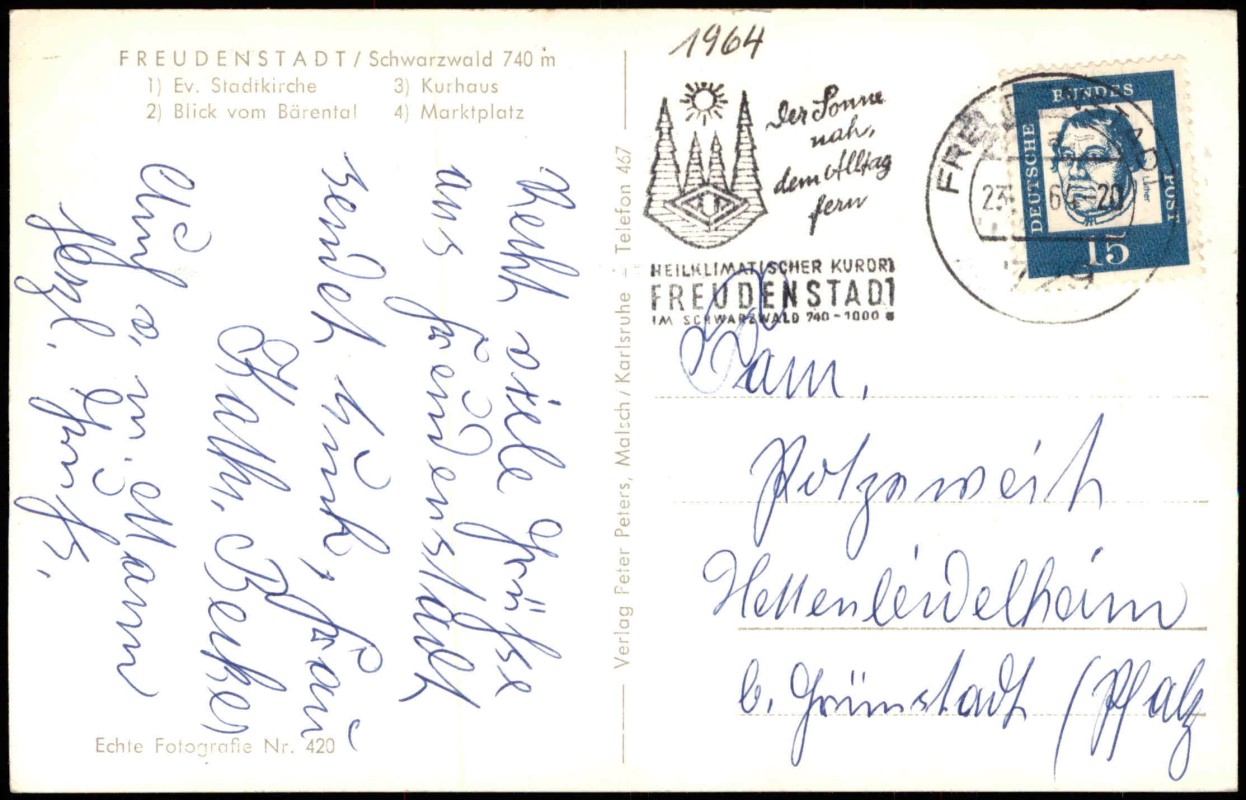 FREUDENSTADT/Schwarzwald 740 m
1) Ev. Stadtkirche 3) Kurhaus
2) Blick vom Bärental 4) Marktplatz
1964
Der Sonne
nah,
dem Alltag
fern
HEILKLIMATISCHER KURORT
FREUDENSTADT
IM SCHWARZWALD 740-1000 m
DEUTSCHE BUNDESPOST
Luther
15
23 64-20
Recht viele Grüße
aus Freudenstadt
sendet Euch, Frau
Kath. Becker
Auch v. m. Mann
Herzl. Grüße.
Verlag Peter Peters, Malsch/Karlsruhe - Telefon 467
Fam.
Hettenleidelheim
b. Grünstadt (Pfalz
Echte Fotografie Nr. 420